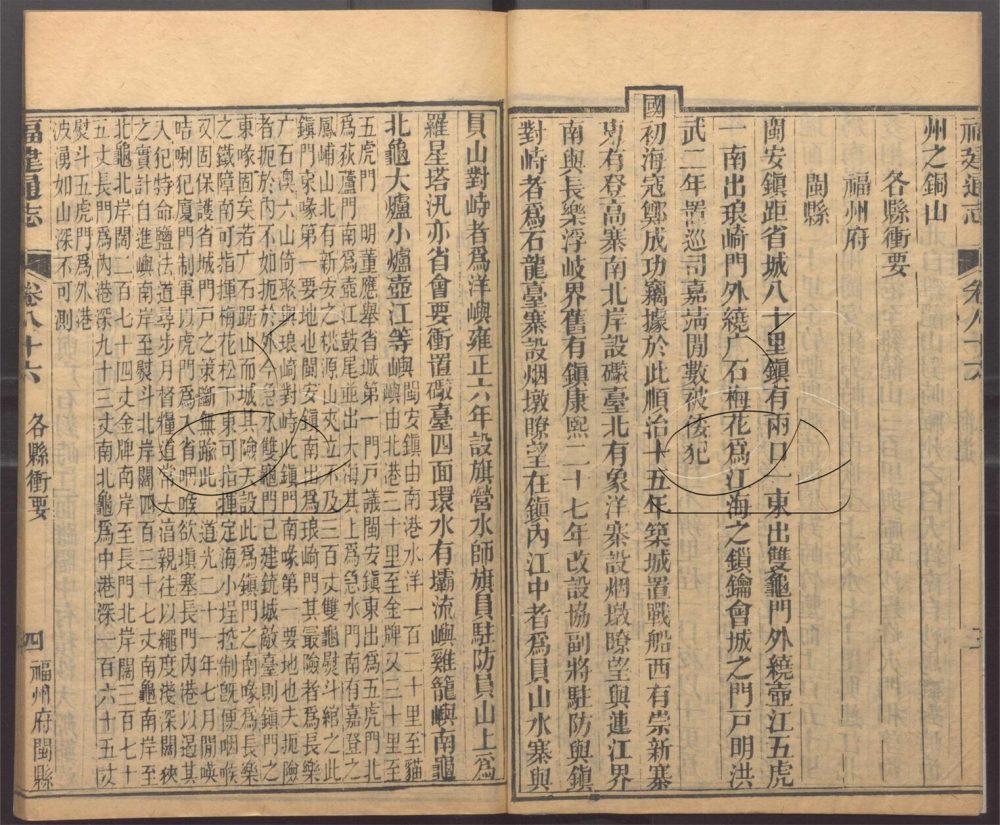 福建通志
卷八十六
三
州之銅山
各縣衝要
福州府
閩縣
閩安鎮距省城八十里鎮有兩口一東出雙龜門外繞壺江五虎
一南出琅崎門外繞广石梅花爲江海之鎖鑰會城之門戸明洪
武二年置巡司嘉靖閒數被倭犯
國初海寇鄭成功竊據於此順治十五年築城置戰船西有崇新寨
東有登高寨南北岸設礮臺北有象洋寨設烟墩瞭望與連江界
南與長樂浮岐界舊有鎮康熙二十七年改設協副將駐防與鎮
對峙者爲石龍臺寨設烟墩瞭望在鎮內江中者爲員山水寨與
員山對峙者爲洋嶼雍正六年設旗營水師旗員駐防員山上爲
羅星塔汛亦省會要衝置礮臺四面環水有壩流嶼雞籠嶼南龜
北龜大爐小爐壺江等嶼
閩安鎮由南港水洋一百二十里至貓
嶼由北港三十里至金牌又三十里至
五虎門　明董應舉省城第一門戸議閩安鎮東出爲五虎門北
爲荻蘆門南爲壺江鼓尾並出大海其上爲急水門南有嘉登之
鳳崤山北有新安之桃源山夾立不及三百丈雙龜熨斗綰之此
鎮東門第一要地也閩安鎮南出爲琅崎門其最險者爲長樂
广石澳六山倚聚與琅崎對峙此鎮門南喙第一要地也夫扼險
者扼於內不如扼於外今急水雙龜門己建銃城敵臺則鎮門之
東喙固矣若广石踞山而城其險天設此爲鎮門之南喙爲長樂
之鐵障南可指揮梅花松下東可指揮定海小埕控制旣便咽喉
又固保護省城門戸之策斷無踰此　道光二十一年七月閒㗸
咭唎犯廈門制軍以虎門爲省咽喉欲塡塞長門內港以遏其
入犯特命鹽法道尋步月督糧道常大淳親往以繩度淺深闊狹
之實計白進嶼南岸至熨斗北岸闊四百三十七丈南龜南岸至
北龜北岸闊二百七十四丈金牌南岸至長門北岸闊三百七十
五丈長門爲內港深九十三丈南北龜爲中港深一百六十五丈
熨斗五虎門外爲外港
波湧如山深不可測
福建通志
卷八十六
各縣衝要
四
福州府閩縣